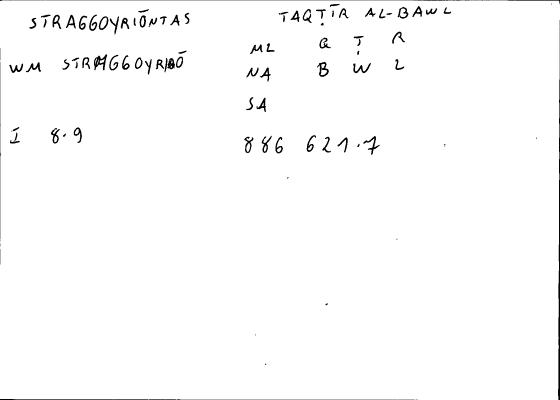 STRAGGOYRIŌNTAS
TAQṬĪR AL-BAWL
ML Q Ṭ R
WM STRAGGOYRIŌ
NA B W L
SA
I 8.9
886 621.7